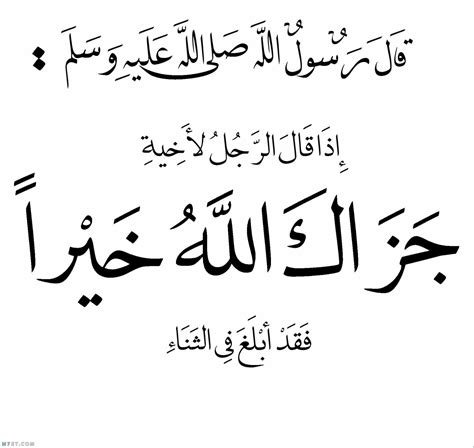 قَالَ رَسُولُ اللَّه صَلى اللَّه عَلَيهِ وَسَلَمَ :
إِذَا قَالَ الرَّجُلُ لأَخِيةِ
جَزَاكَ اللَّهُ خَيْراً
فَقَدْ أبْلَغَ فِي الثَنَاءِ
H7ST.COM